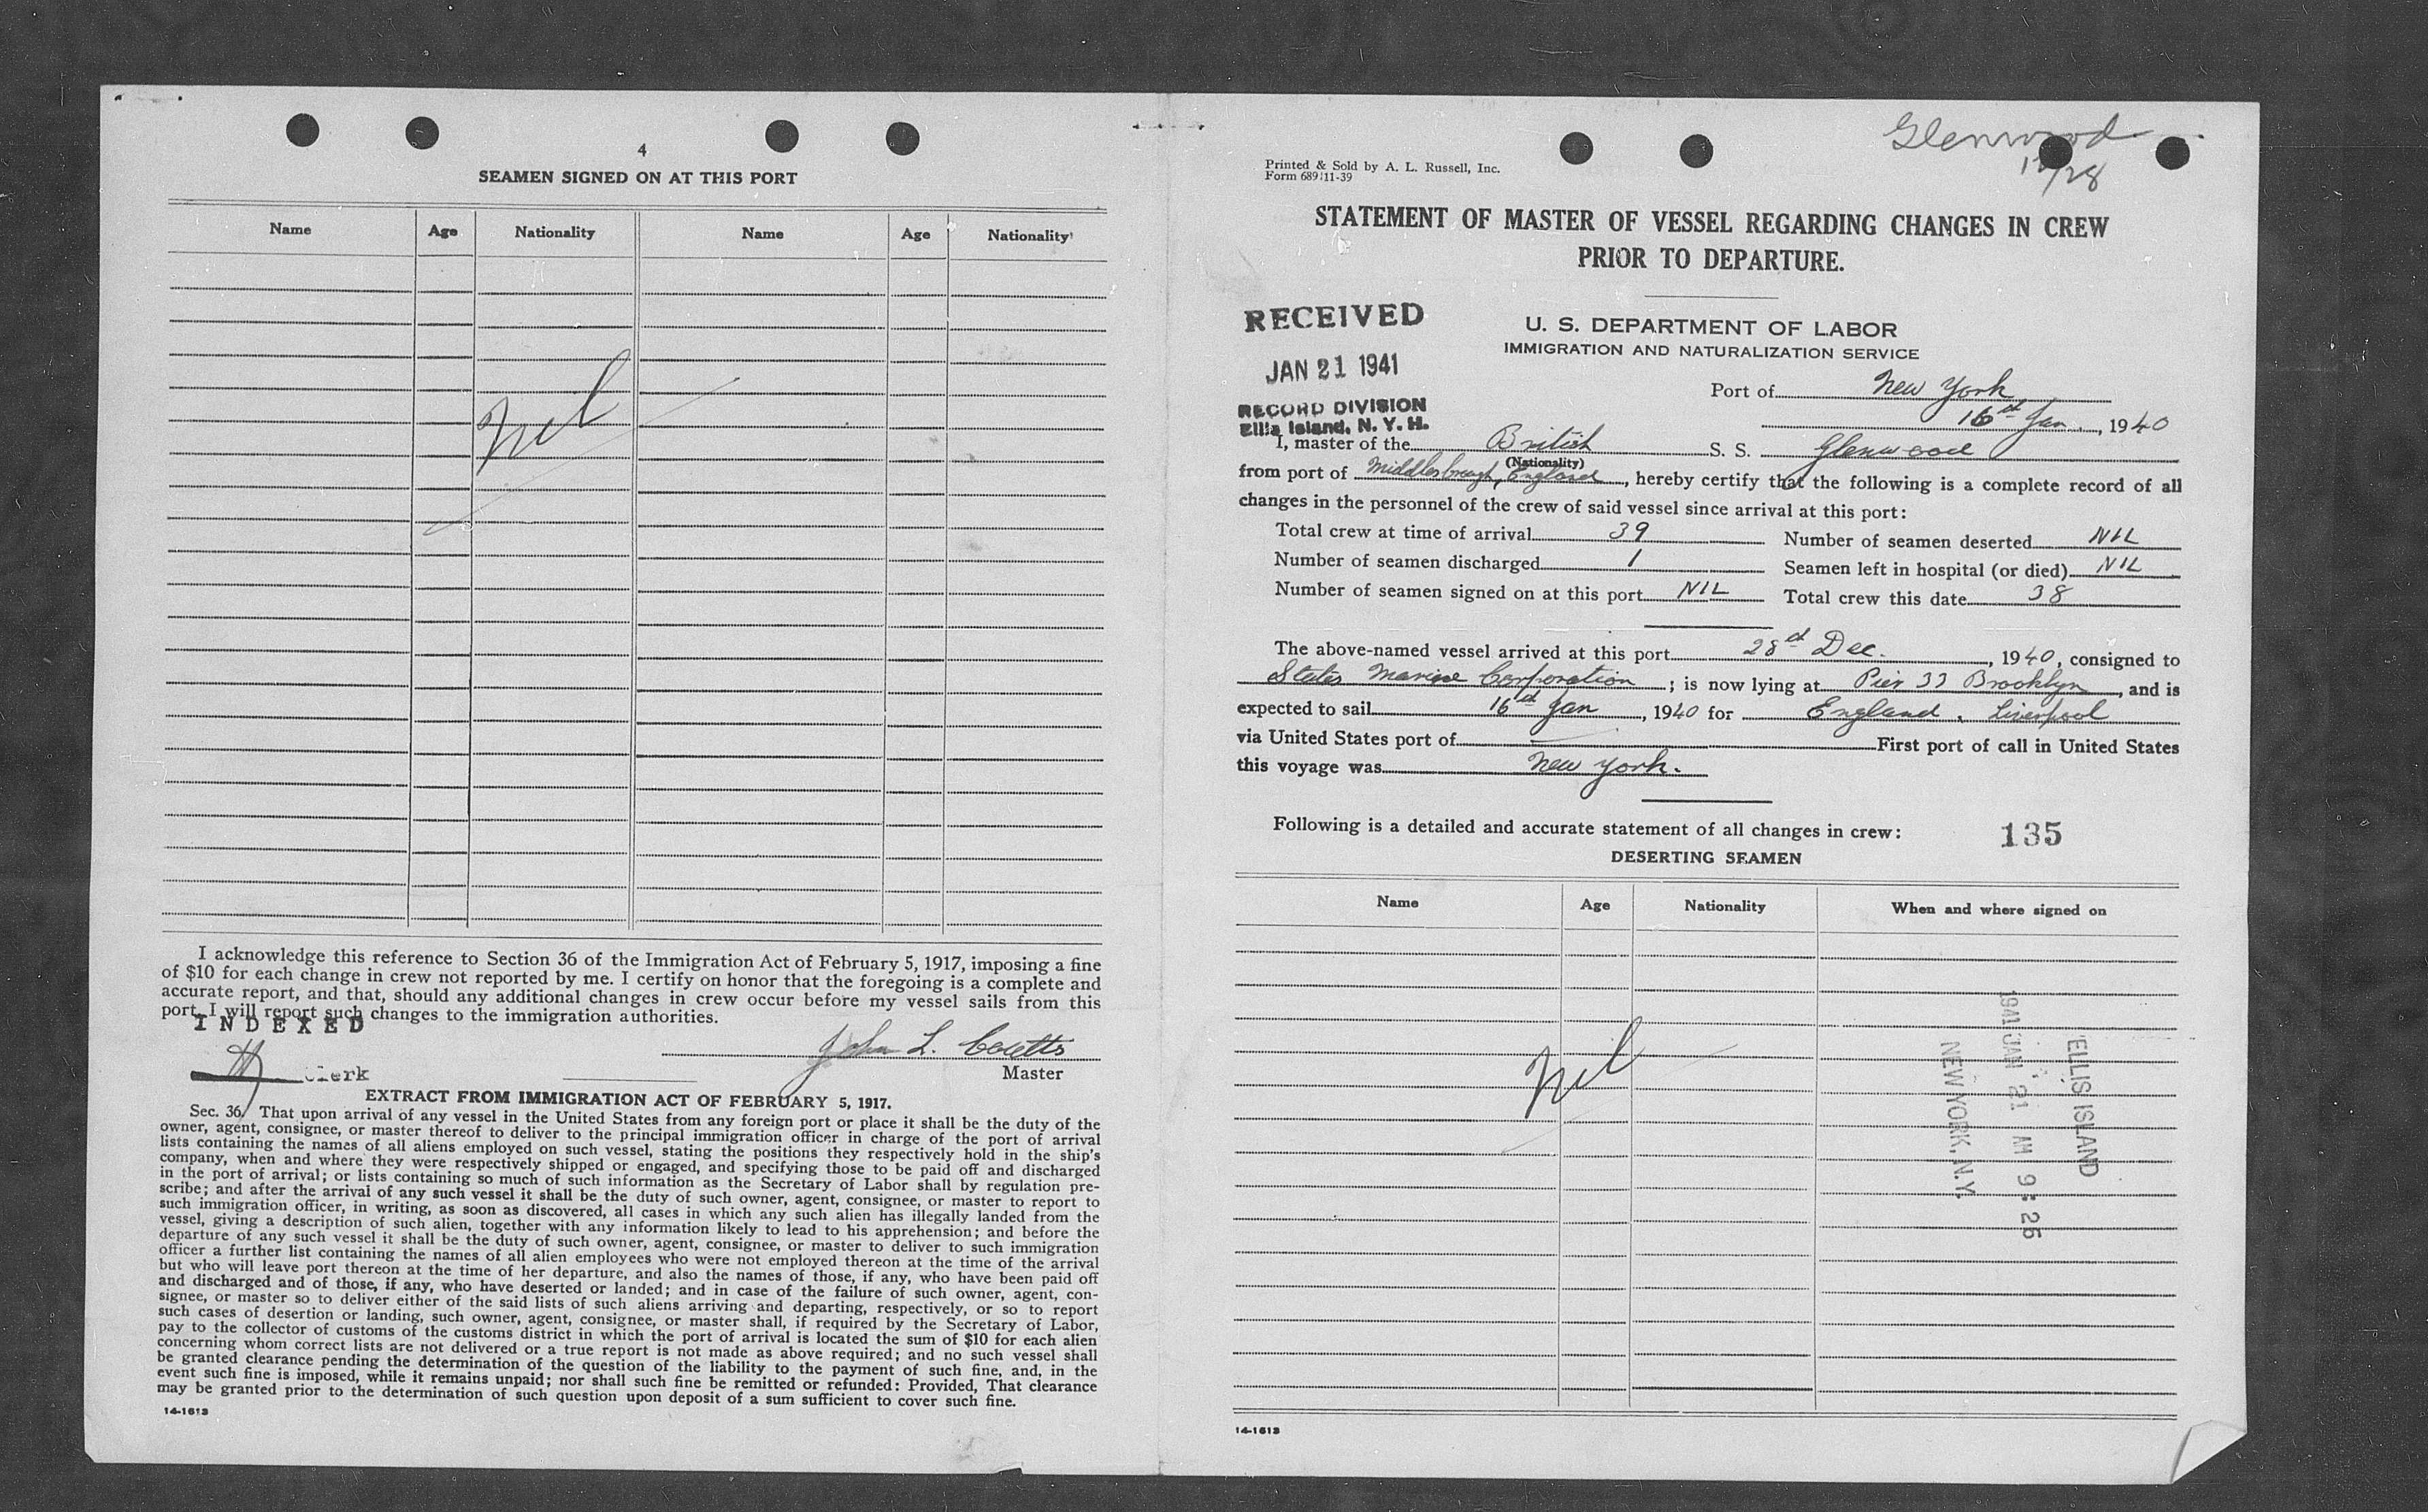 4
SEAMEN SIGNED ON AT THIS PORT
Name Age Nationality Name Age Nationality
Nil
I acknowledge this reference to Section 36 of the Immigration Act of February 5, 1917, imposing a fine
of $10 for each change in crew not reported by me. I certify on honor that the foregoing is a complete and
accurate report, and that, should any additional changes in crew occur before my vessel sails from this
port, I will report such changes to the immigration authorities.
INDEXED
John L.
Clerk
Master
EXTRACT FROM IMMIGRATION ACT OF FEBRUARY 5, 1917.
Sec. 36. That upon arrival of any vessel in the United States from any foreign port or place it shall be the duty of the
owner, agent, consignee, or master thereof to deliver to the principal immigration officer in charge of the port of arrival
lists containing the names of all aliens employed on such vessel, stating the positions they respectively hold in the ship's
company, when and where they were respectively shipped or engaged, and specifying those to be paid off and discharged
in the port of arrival; or lists containing so much of such information as the Secretary of Labor shall by regulation pre-
scribe; and after the arrival of any such vessel it shall be the duty of such owner, agent, consignee, or master to report to
such immigration officer, in writing, as soon as discovered, all cases in which any such alien has illegally landed from the
vessel, giving a description of such alien, together with any information likely to lead to his apprehension; and before the
departure of any such vessel it shall be the duty of such owner, agent, consignee, or master to deliver to such immigration
officer a further list containing the names of all alien employees who were not employed thereon at the time of the arrival
but who will leave port thereon at the time of her departure, and also the names of those, if any, who have been paid off
and discharged and of those, if any, who have deserted or landed; and in case of the failure of such owner, agent, con-
signee, or master so to deliver either of the said lists of such aliens arriving and departing, respectively, or so to report
such cases of desertion or landing, such owner, agent, consignee, or master shall, if required by the Secretary of Labor,
pay to the collector of customs of the customs district in which the port of arrival is located the sum of $10 for each alien
concerning whom correct lists are not delivered or a true report is not made as above required; and no such vessel shall
be granted clearance pending the determination of the question of the liability to the payment of such fine, and, in the
event such fine is imposed, while it remains unpaid; nor shall such fine be remitted or refunded: Provided, That clearance
may be granted prior to the determination of such question upon deposit of a sum sufficient to cover such fine.
14-1613
Glenwood
12/28
Printed & Sold by A. L. Russell, Inc.
Form 689 11-39
STATEMENT OF MASTER OF VESSEL REGARDING CHANGES IN CREW
PRIOR TO DEPARTURE.
RECEIVED
JAN 21 1941
RECORD DIVISION
Ellis Island, N. Y. H.
U. S. DEPARTMENT OF LABOR
IMMIGRATION AND NATURALIZATION SERVICE
Port of New York
16th Jan., 1940
I, master of the British S. S. Glenwood
(Nationality)
from port of Middlesbrough, England, hereby certify that the following is a complete record of all
changes in the personnel of the crew of said vessel since arrival at this port:
Total crew at time of arrival 39 Number of seamen deserted NIL
Number of seamen discharged 1 Seamen left in hospital (or died) NIL
Number of seamen signed on at this port NIL Total crew this date 38
The above-named vessel arrived at this port 28th Dec., 1940, consigned to
States Marine Corporation; is now lying at Pier 33 Brooklyn, and is
expected to sail 16th Jan, 1940 for England, Liverpool
via United States port of First port of call in United States
this voyage was New York.
Following is a detailed and accurate statement of all changes in crew: 135
DESERTING SEAMEN
Name Age Nationality When and where signed on
Nil
ELLIS ISLAND
1941 JAN 21 AM 9:26
NEW YORK, N.Y.
14-1613